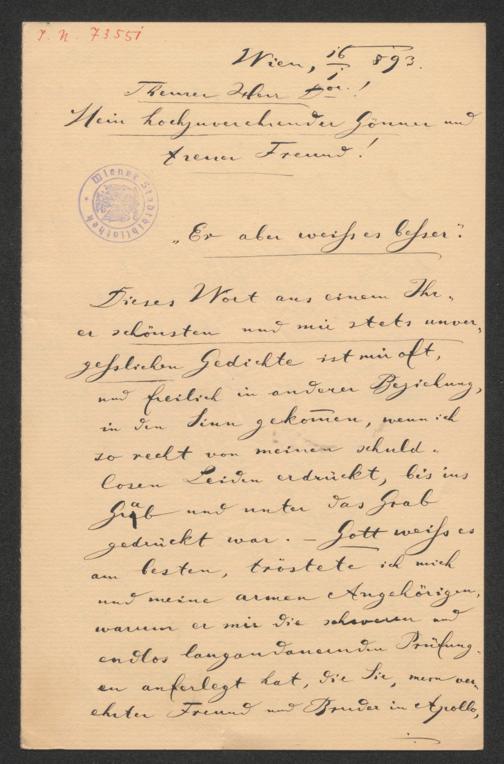 J. N. 73551
Wien, 16/1 893.
Theurer Herr Dor.!
Mein hochzuverehrender Gönner und
treuer Freund!
Wiener Stadtbibliothek
„Er aber weiss es besser".
Dieses Wort aus einem Ihr-
er schönsten und mir stets unver-
gesslichen Gedichte ist mir oft,
und freilich in anderer Beziehung,
in den Sinn gekom̅en, wenn ich
so recht von meinen schuld-
losen Leiden erdrückt, bis ins
Grab und unter das Grab
gedrückt war. – Gott weiss es
am besten, tröstete ich mich
und meine armen Angehörigen,
warum er mir die schweren und
endlos langandauernden Prüfung-
en auferlegt hat, die Sie, mein ver-
ehrter Freund und Bruder in Apollo,